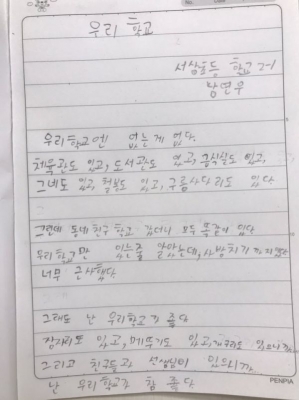 우리 학교
서상초등 학교 2-1
우리학교엔 없는게 없다.
체육관도 있고, 도서관도 있고, 급식실도 있고,
그네도 있고, 철봉도 있고, 구름사다리도 있다.
그런데 동네 친구 학교 갔더니 모두 똑같이 있다
우리 학교만 있는줄 알았는데,
너무 근사했다.
그래도 난 우리학교가 좋다
잠자리도 있고, 메뚜기도 있고, 개구리도 있으니까
그리고 친구들과 선생님이 있으니까
난 우리 학교가 참 좋다
PENPIA